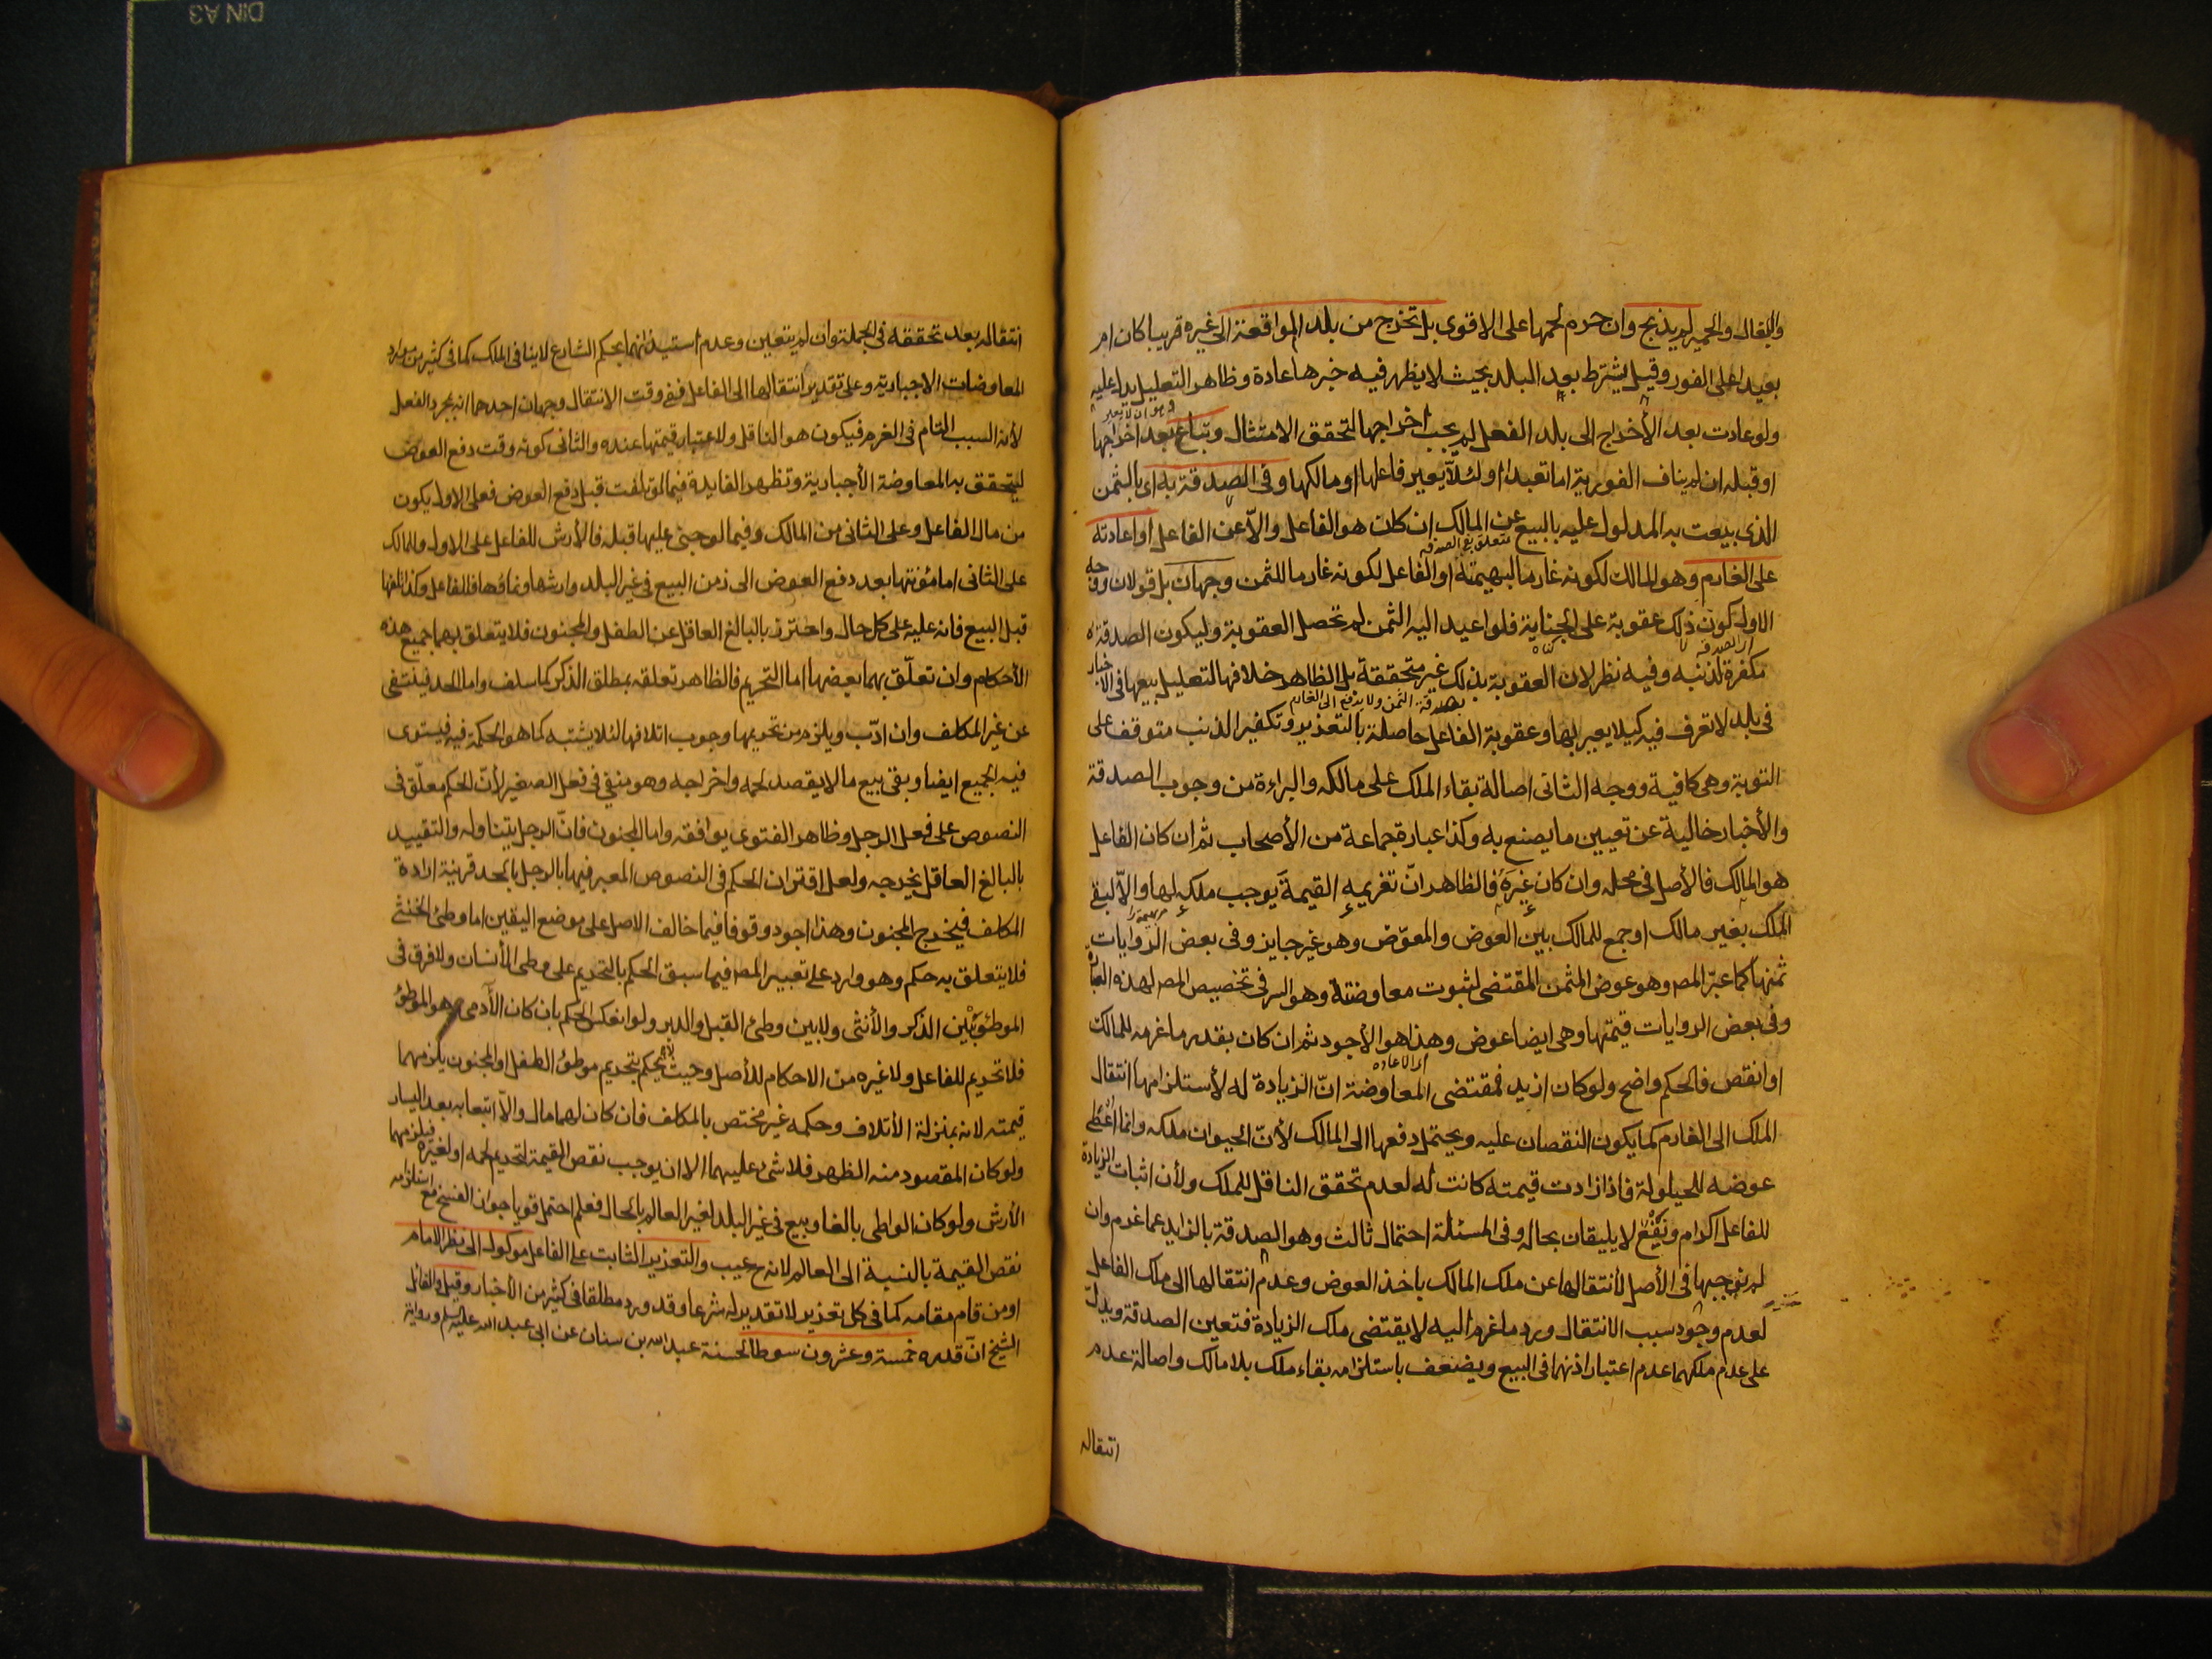 والبغال والحمير لم يذبح وان حرم لحمها على الاقوى بل تخرج من بلد المواقعة الى غيره قريبا كان ام
بعيدا على الفور وقيل يشترط بعد البلد بحيث لا يظهر فيه خبرها عادة وظاهر التعليل يدل عليه
وهو ان لا يعير
ولو عادت بعد الأخراج الى بلد الفعل لم يجب اخراجها لتحقق الامتثال وتباع بعد اخراجها
او قبله ان لم يناف الفورية اما تعبدا او لئلّا يعير فاعلها او مالكها وفى الصدقة به اى بالثمن
الذى بيعت به المدلول عليه بالبيع عن المالك ان كان هو الفاعل والّا عن الفاعل او اعادته
متعلق بفى الصدقه
على الغارم وهو المالك لكونه غارما لبهيمته او الفاعل لكونه غارما للثمن وجهان بل قولان وجه
الاول كون ذلك عقوبة على الجناية فلو اعيد اليه الثمن لم تحصل العقوبة وليكون الصدقة
اى الصدقه
مكفرة لذنبه وفيه نظر لان العقوبة بذلك غير متحققة بل الظاهر خلافها لتعليل بيعها فى الاخبار
بصدقة الثمن ولا يدفع الى الغارم
فى بلد لا تعرف فيه كيلا يعير بها وعقوبة الفاعل حاصلة بالتعذير وتكفير الذنب متوقف على
التوبة وهى كافية ووجه الثانى اصالة بقاء الملك على مالكه والبراءة من وجوب الصدقة
والأخبار خالية عن تعيين ما يصنع به وكذا عبارة جماعة من الأصحاب ثم ان كان الفاعل
هو المالك فالأصل فى محله وان كان غيره فالظاهر انّ تغريمه القيمة يوجب ملكه لها والّا لبقى
الملك بغير مالك او جمع للمالك بين العوض والمعوّض وهو غير جايز وفى بعض الروايات
ثمنها كما عبّر المص وهو عوض المثمن المقتضى لثبوت معاوضته وهو السر فى تخصيص المص لهذه العبارة
وفى بعض الروايات قيمتها وهى ايضا عوض وهذا هو الأجود ثم ان كان بقدر ما غرمه للمالك
اى الاعاده
او انقص فالحكم واضح ولو كان ازيد فمقتضى المعاوضة انّ الزيادة له لأستلزامها انتقال
الملك الى الغارم كما يكون النقصان عليه ويحتمل دفعها الى المالك لأنّ الحيوان ملكه وانما اعطى
عوضه للحيلولة فاذا زادت قيمته كانت له لعدم تحقق الناقل للملك ولأن اثبات الزيادة
للفاعل اكرام ونفع لا يليقان بحاله وفى المسئلة احتمال ثالث وهو الصدقة بالزايد عما غرم وان
لم نوجبها فى الأصل لأنتقالها عن ملك المالك باخذ العوض وعدم انتقالها الى ملك الفاعل
لعدم وجود سبب الانتقال ورد ما غرم اليه لا يقتضى ملك الزيادة فتعين الصدقة ويدل
على عدم ملكهما عدم اعتبار اذنهما فى البيع ويضعف باستلزامه بقاء ملك بلا مالك واصالة عدم
انتقاله
انتقاله بعد تحققه فى الجملة وان لم يتعين وعدم استيذانهما بحكم الشارع لا ينافى الملك كما فى كثير من موارد
المعاوضات الاجبارية وعلى تقدير انتقالها الى الفاعل ففى وقت الانتقال وجهان احدهما انه بمجرد الفعل
لأنه السبب التام فى الغرم فيكون هو الناقل ولا عتبار قيمتها عنده والثانى كونه وقت دفع العوض
ليتحقق به المعاوضة الأجبارية وتظهر الفايدة فيما لو تلفت قبل دفع العوض فعلى الاول يكون
من مال الفاعل وعلى الثانى من المالك وفيما لو جنى عليها قبله فالأرش للفاعل على الاول وللمالك
على الثانى اما مؤنتها بعد دفع العوض الى زمن البيع فى غير البلد وارشها ونماؤها فللفاعل وكذا تلفها
قبل البيع فانه عليه على كل حال واحترز بالبالغ العاقل عن الطفل والمجنون فلا يتعلق بهما جميع هذه
الأحكام وان تعلّق بهما بعضها اما التحريم فالظاهر تعلقه بمطلق الذكر كما سلف واما الحد فينتفى
عن غير المكلف وان ادّب ويلزم من تحريمها وجوب اتلافها لئلا يشتبه كما هو الحكمة فيه فيستوى
فيه الجميع ايضا وبقى بيع ما لا يقصد لحمه واخراجه وهو منفى فى فعل الصغير لأنّ الحكم معلّق فى
النصوص على فعل الرجل وظاهر الفتوى يوافقه واما المجنون فانّ الرجل يتناوله والتقييد
بالبالغ العاقل يخرجه ولعل اقتران الحكم فى النصوص المعبر فيها بالرجل بالحد قرينة ارادة
المكلف فيخرج المجنون وهذا اجود وقوفا فيما خالف الاصل على موضع اليقين اما وطئ الخنثى
فلا يتعلق به حكم وهو وارد على تعبير المص فيما سبق الحكم بالتحريم على وطى الأنسان ولا فرق فى
الموطوء بين الذكر والأنثى ولا بين وطئ القبل والدبر ولو انعكس الحكم بان كان الآدمى هو الموطوء
فلا تحريم للفاعل ولا غيره من الاحكام للأصل وحيث يحكم بتحريم موطوء الطفل او المجنون يلزمهما
قيمته لانه بمنزلة الأتلاف وحكمه غير مختص بالمكلف فان كان لهما مال والّا اتبعا به بعد اليسار
ولو كان المقصود منه الظهر فلا شئ عليهما الا ان يوجب نقص القيمة لتحريم لحمه او لغيره فيلزمهما
الأرش ولو كان الواطى بالغا وبيع فى غير البلد لغير العالم بالحال فعلم احتمل قويا جواز الفسخ مع استلزامه
نقص القيمة بالنسبة الى العالم لانه ح عيب والتعزير الثابت على الفاعل موكول الى نظر الامام
او من قام مقامه كما فى كل تعذير لا تقدير له شرعا وقد ورد مطلقا فى كثير من الأخبار وقيل والقائل
الشيخ انّ قدره خمسة وعشرون سوطا لحسنة عبد الله بن سنان عن ابى عبد الله عليه السلم ورواية